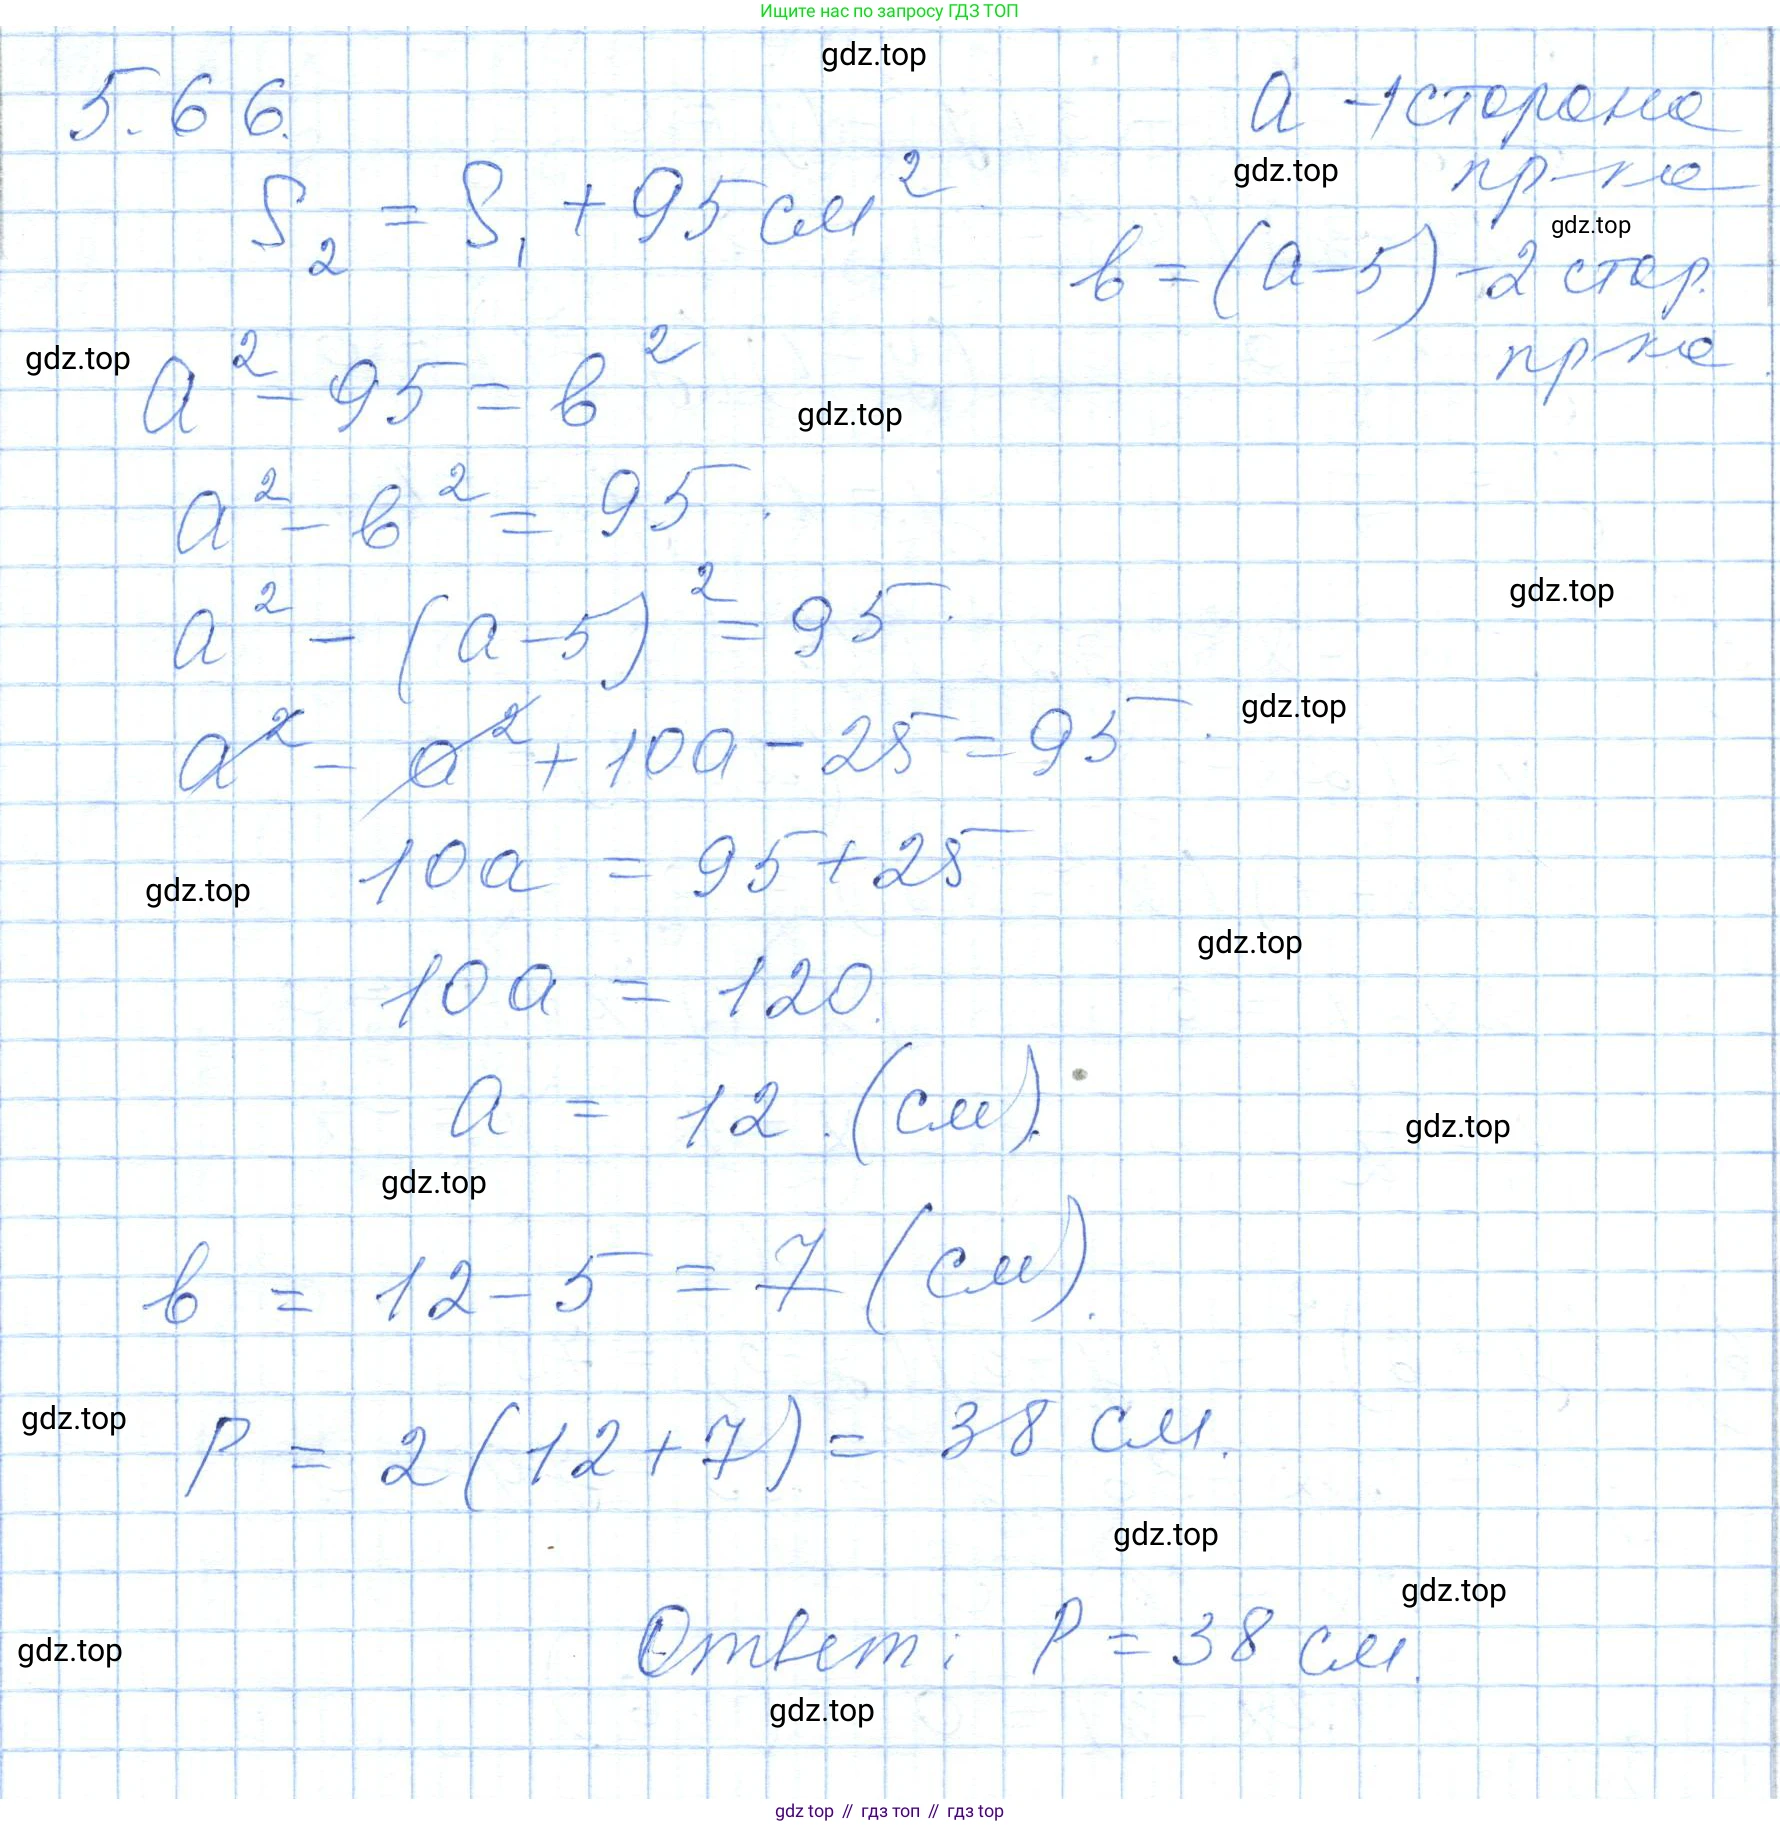 Ищите нас по запросу ГДЗ ТОП
gdz.top
5.66.
a - 1 сторона
пр-ка
gdz.top
S₂ = S₁ + 95 см²
gdz.top
b = (a - 5) - 2 стор.
пр-ка
gdz.top
a² - 95 = b²
gdz.top
a² - b² = 95.
gdz.top
a² - (a - 5)² = 95.
gdz.top
a² - a² + 10a - 25 = 95.
10a = 95 + 25
gdz.top
gdz.top
10a = 120.
a = 12. (см).
gdz.top
gdz.top
b = 12 - 5 = 7 (см).
gdz.top
P = 2(12 + 7) = 38 см.
gdz.top
gdz.top
Ответ: P = 38 см.
gdz.top
gdz.top
gdz top // гдз топ // гдз top